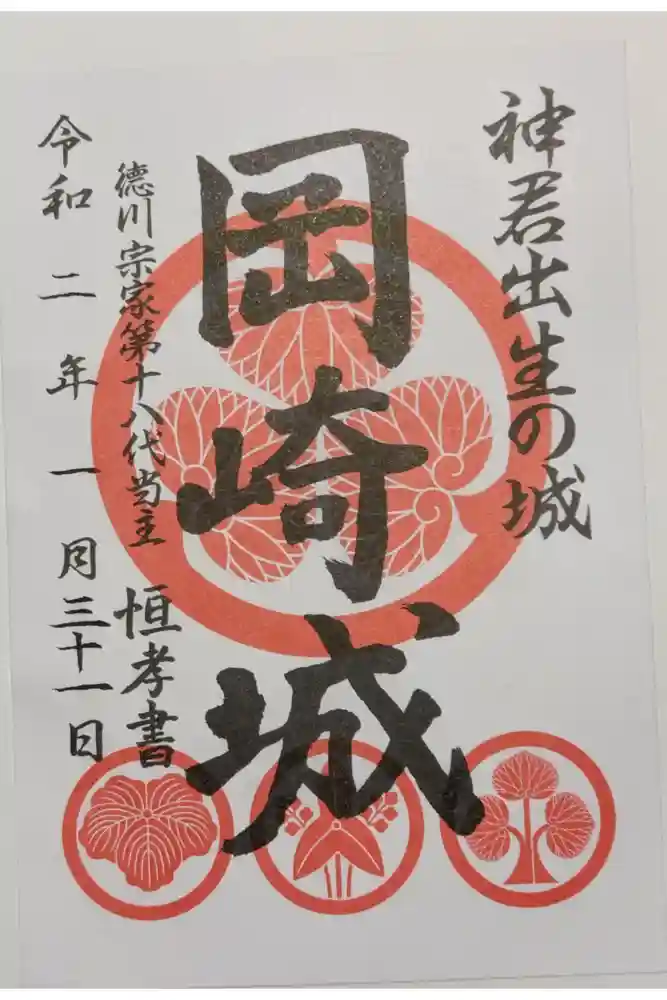 神君出生の城
岡崎城
徳川宗家第十八代当主 恒孝書
令和二年一月三十一日